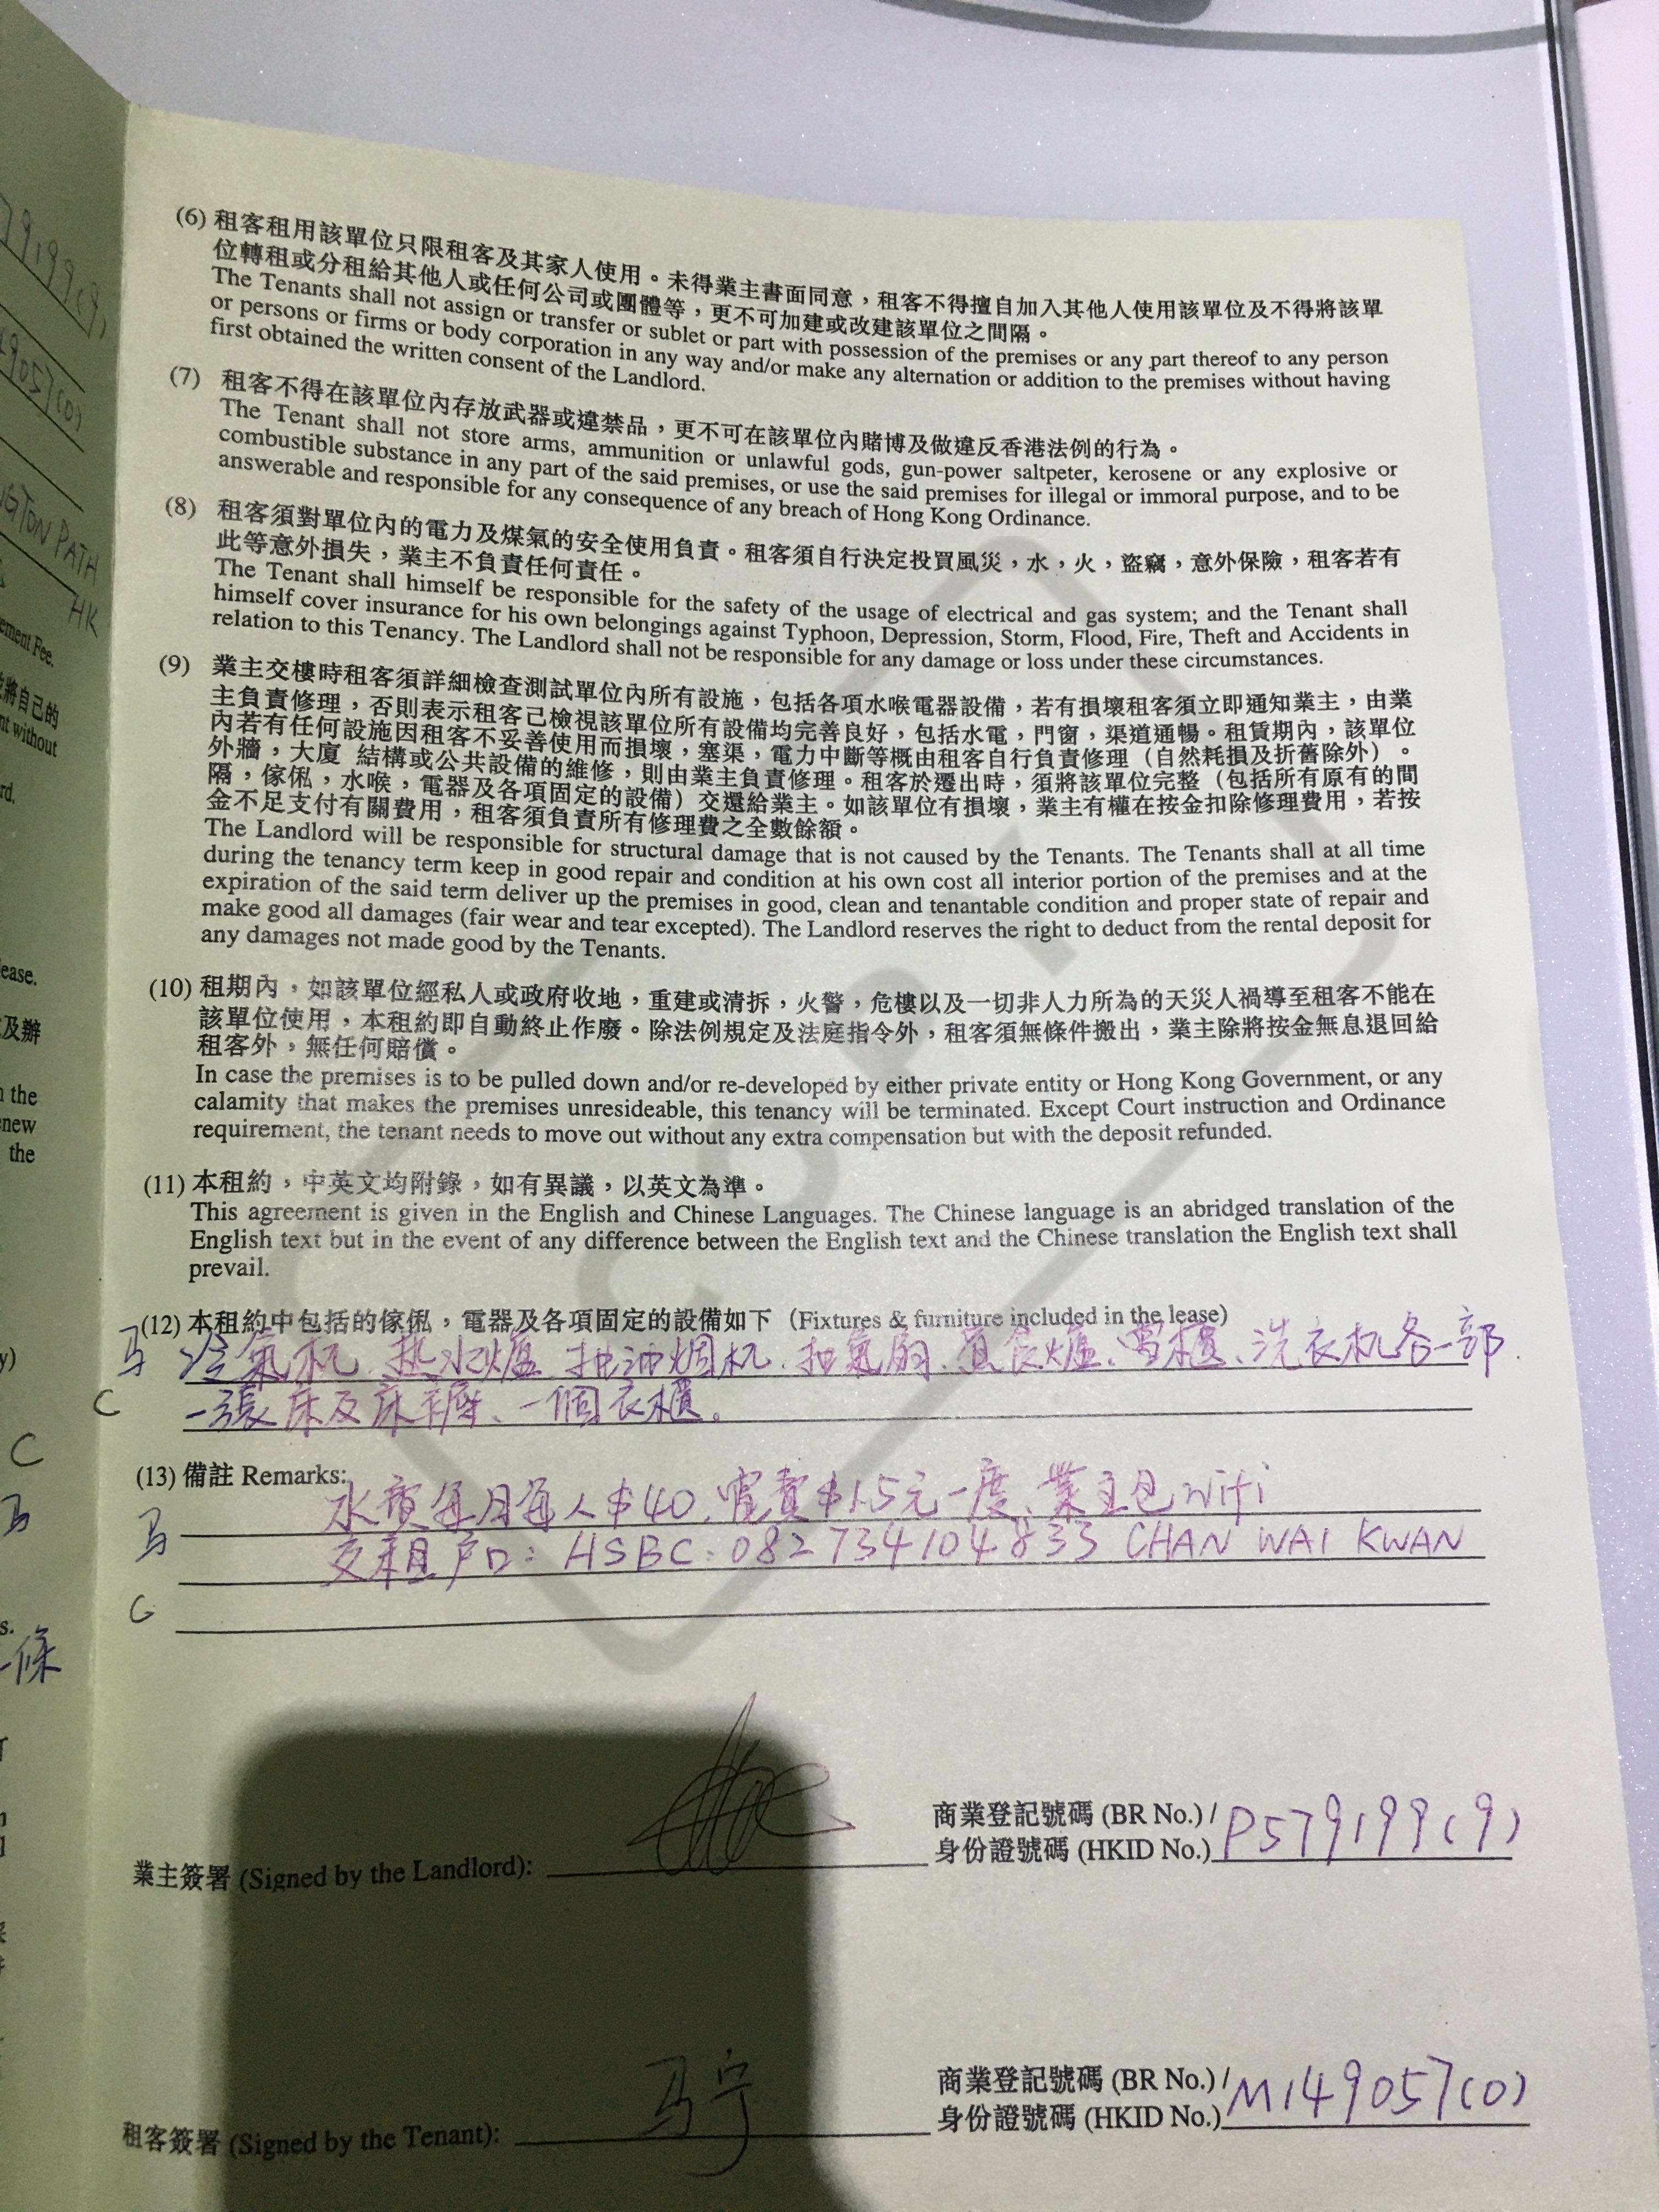 (6) 租客租用該單位只限租客及其家人使用。未得業主書面同意，租客不得擅自加入其他人使用該單位及不得將該單
位轉租或分租給其他人或任何公司或團體等，更不可加建或改建該單位之間隔。
The Tenants shall not assign or transfer or sublet or part with possession of the premises or any part thereof to any person
or persons or firms or body corporation in any way and/or make any alternation or addition to the premises without having
first obtained the written consent of the Landlord.
(7) 租客不得在該單位內存放武器或違禁品，更不可在該單位內賭博及做違反香港法例的行為。
The Tenant shall not store arms, ammunition or unlawful gods, gun-power saltpeter, kerosene or any explosive or
combustible substance in any part of the said premises, or use the said premises for illegal or immoral purpose, and to be
answerable and responsible for any consequence of any breach of Hong Kong Ordinance.
(8) 租客須對單位內的電力及煤氣的安全使用負責。租客須自行決定投買風災，水，火，盜竊，意外保險，租客若有
此等意外損失，業主不負責任何責任。
The Tenant shall himself be responsible for the safety of the usage of electrical and gas system; and the Tenant shall
himself cover insurance for his own belongings against Typhoon, Depression, Storm, Flood, Fire, Theft and Accidents in
relation to this Tenancy. The Landlord shall not be responsible for any damage or loss under these circumstances.
(9) 業主交樓時租客須詳細檢查測試單位內所有設施，包括各項水喉電器設備，若有損壞租客須立即通知業主，由業
主負責修理，否則表示租客己檢視該單位所有設備均完善良好，包括水電，門窗，渠道通暢。租賃期內，該單位
內若有任何設施因租客不妥善使用而損壞，塞渠，電力中斷等概由租客自行負責修理（自然耗損及折舊除外）。
外牆，大廈 結構或公共設備的維修，則由業主負責修理。租客於遷出時，須將該單位完整（包括所有原有的間
隔，傢俬，水喉，電器及各項固定的設備）交還給業主。如該單位有損壞，業主有權在按金扣除修理費用，若按
金不足支付有關費用，租客須負責所有修理費之全數餘額。
The Landlord will be responsible for structural damage that is not caused by the Tenants. The Tenants shall at all time
during the tenancy term keep in good repair and condition at his own cost all interior portion of the premises and at the
expiration of the said term deliver up the premises in good, clean and tenantable condition and proper state of repair and
make good all damages (fair wear and tear excepted). The Landlord reserves the right to deduct from the rental deposit for
any damages not made good by the Tenants.
(10) 租期內，如該單位經私人或政府收地，重建或清拆，火警，危樓以及一切非人力所為的天災人禍導至租客不能在
該單位使用，本租約即自動終止作廢。除法例規定及法庭指令外，租客須無條件搬出，業主除將按金無息退回給
租客外，無任何賠償。
In case the premises is to be pulled down and/or re-developed by either private entity or Hong Kong Government, or any
calamity that makes the premises unresideable, this tenancy will be terminated. Except Court instruction and Ordinance
requirement, the tenant needs to move out without any extra compensation but with the deposit refunded.
(11) 本租約，中英文均附錄，如有異議，以英文為準。
This agreement is given in the English and Chinese Languages. The Chinese language is an abridged translation of the
English text but in the event of any difference between the English text and the Chinese translation the English text shall
prevail.
(12) 本租約中包括的傢俬，電器及各項固定的設備如下（Fixtures & furniture included in the lease）
马 冷氣机、热水爐、抽油烟机、抽氣扇、煮食爐、雪櫃、洗衣机各一部
C 一張床及床褥、一個衣櫃。
(13) 備註 Remarks:
水費每月每人$40、電費$1.5元一度、業主包wifi
马 交租戶口: HSBC: 082 734104833 CHAN WAI KWAN
C
業主簽署 (Signed by the Landlord):
商業登記號碼 (BR No.) /
身份證號碼 (HKID No.) P579199(9)
租客簽署 (Signed by the Tenant): 马宁
商業登記號碼 (BR No.) /
身份證號碼 (HKID No.) M149057(0)
79199(9)
49057(0)
PATH
HK
ement Fee.
將自己的
nt without
rd.
ease.
及辦
the
new
the
y)
C
马
s.
一條